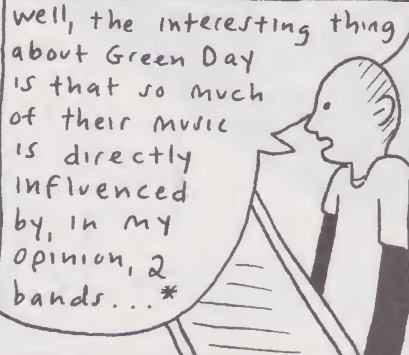 well, the interesting thing
about Green Day
is that so much
of their music
is directly
influenced
by, in my
opinion, 2
bands...*